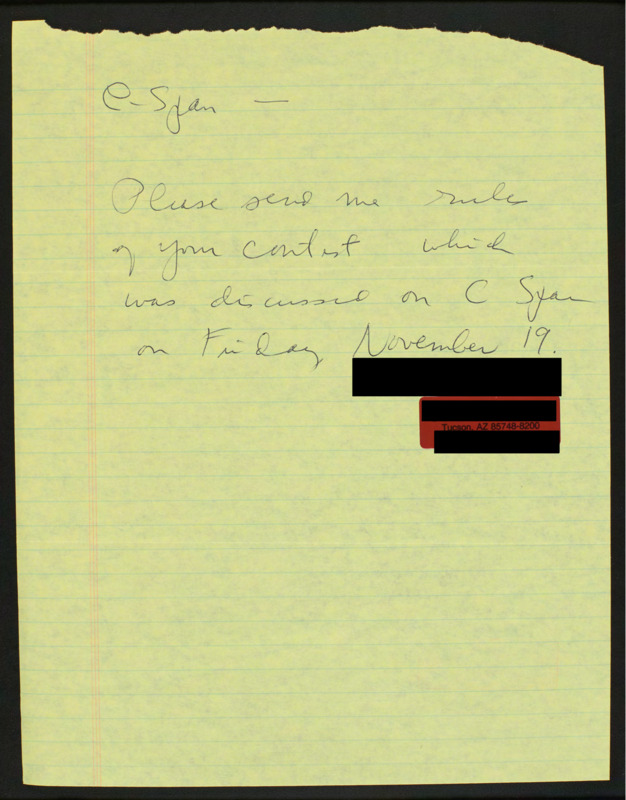 C-Span —
Please send me rules
of your contest which
was discussed on C Span
on Friday November 19.
Tucson, AZ 85748-8200